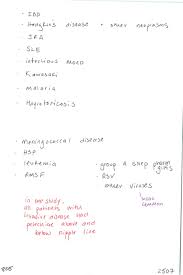 - IBD
- Hodgkins disease + other neoplasms
- JRA
- SLE
- infectious mono
- Kawasaki
- malaria
Meningococcal disease
- HSP
- leukemia
- RMSF
- group A strep
- RSV
- other viruses
most common
in one study,
all patients with
invasive disease had
petechiae above and
below nipple line
2507